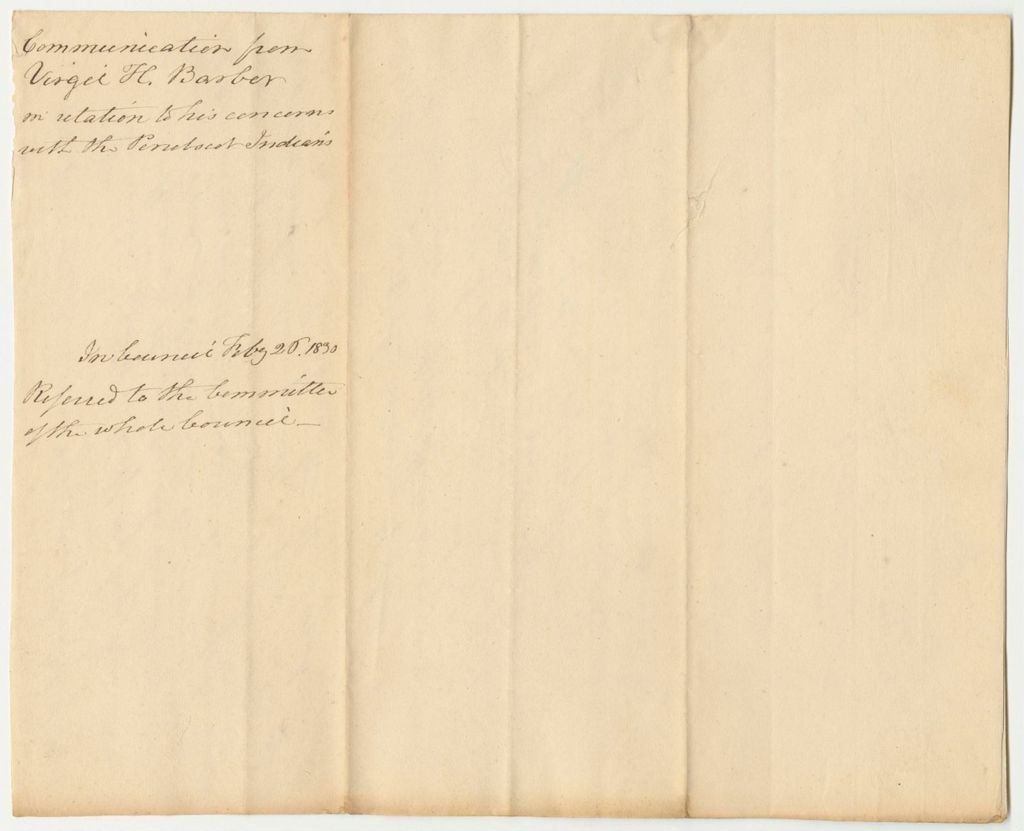 Communication from
Virgil H. Barber
in relation to his concerns
with the Penobscot Indians
In Council Feby 26. 1830
Referred to the Committee
of the whole Council